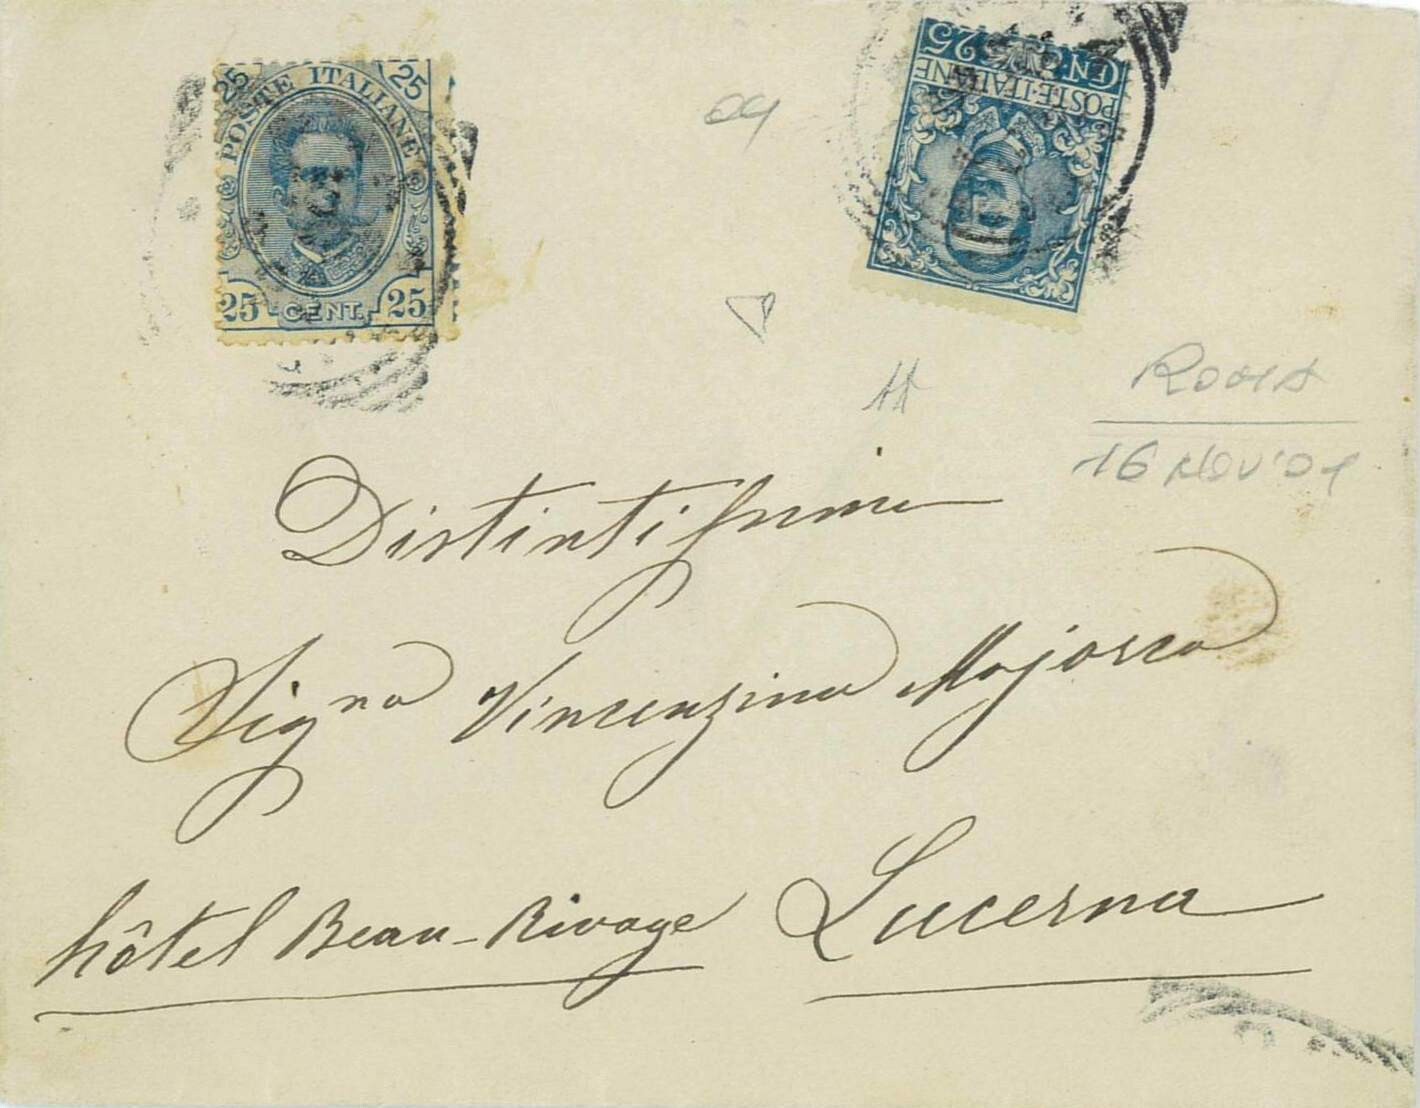 25 POSTE ITALIANE 25
25 CENT. 25
CEN. 25
POSTE·ITALIANE
ROMA
16 NOV '01
Distintissima
Signa Vincenzina Majorca
hôtel Beau-Rivage Lucerna